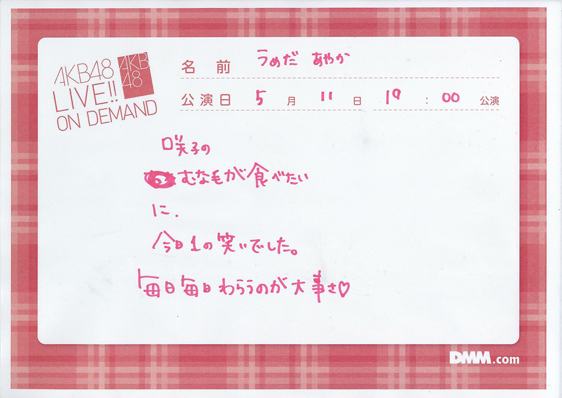 AKB48
LIVE!!
ON DEMAND
AKB
48
名前 うめだ あやか
公演日 5月 11日 19:00 公演
咲子の
むな毛が食べたい
に、
今日1の笑いでした。
毎日毎日わらうのが大事さ♡
DMM.com